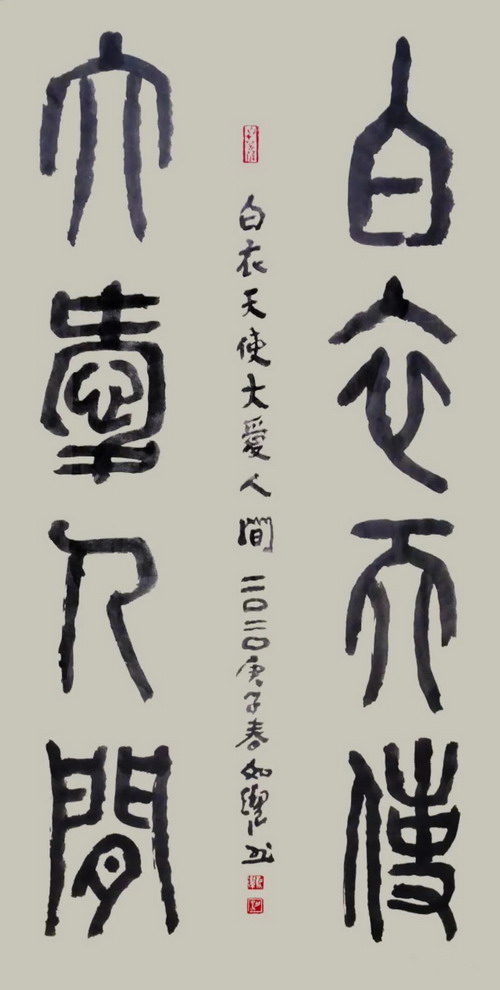 白衣天使
大爱人間
白衣天使大爱人间二〇二〇庚子春如耀书